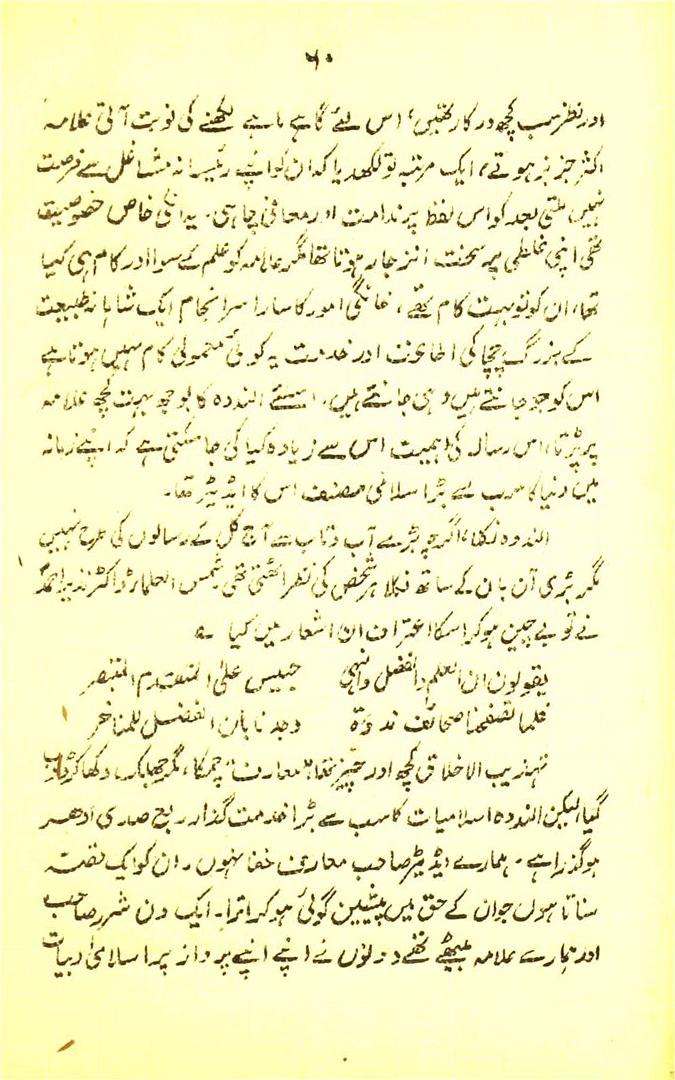 ۶۰
اور نظر سب کچھ درکار تھیں، اس لئے گاہے ماہے لکھنے کی نوبت آتی علامہ
اکثر جزبز ہوتے، ایک مرتبہ تو لکھدیا کہ ان کو اپنے رئیسانہ مشاغل سے فرصت
نہیں ملتی بعد کو اس لفظ پر ندامت اور معافی چاہی۔ یہ انکی خاص خصوصیت
تھی اپنی غلطی پر سخت انزجار ہوتا تھا مگر علامہ کو علم کے سوا اور کام ہی کیا
تھا، ان کو تو بہت کام تھے، خانگی امور کا سارا سرانجام ایک شاہانہ طبیعت
کے بزرگ چچا کی اطاعت اور خدمت یہ کوئی معمولی کام نہیں ہوتا ہے
اس کو جو جانتے ہیں وہی جانتے ہیں۔ اسلئے الندوہ کا بوجھ بہت کچھ علامہ
پر پڑتا، اس رسالہ کی اہمیت اس سے زیادہ کیا کی جاسکتی ہے کہ اپنے زمانہ
میں دنیا کا سب سے بڑا اسلامی مصنف اس کا اڈیٹر تھا۔
الندوہ نکلا، اگرچہ بڑے آب و تاب سے آج کل کے رسالوں کی طرح نہیں
مگر بڑی آن بان کے ساتھ نکلا ہر شخص کی نظر اٹھتی تھی شمس العلماء ڈاکٹر نذیر احمد
نے تو بے چین ہو کر اسکا اعتراف ان اشعار میں کیا ؎
یقولون ان العلم والفضل والنہی حبیس علی المتقدم المتبصر
فلما تصفحنا صحائف ندوۃ وجدنا بان الفضل للمتاخر
تہذیب الاخلاق کچھ اور چیز تھا، "معارف" چمکا، مگر جھلک دکھا کر ڈوب
گیا، لیکن الندوہ اسلامیات کا سب سے بڑا خدمت گذار ربع صدی ادھر
ہو گذرا ہے۔ ہمارے اڈیٹر صاحب معارف خفا نہوں۔ ان کو ایک قصہ
سناتا ہوں جو ان کے حق میں پیشین گوئی ہو کر اترا۔ ایک دن شرر صاحب
اور ہمارے علامہ بیٹھے تھے دونوں نے اپنے اپنے پرواز پر اسلامی ادبیات